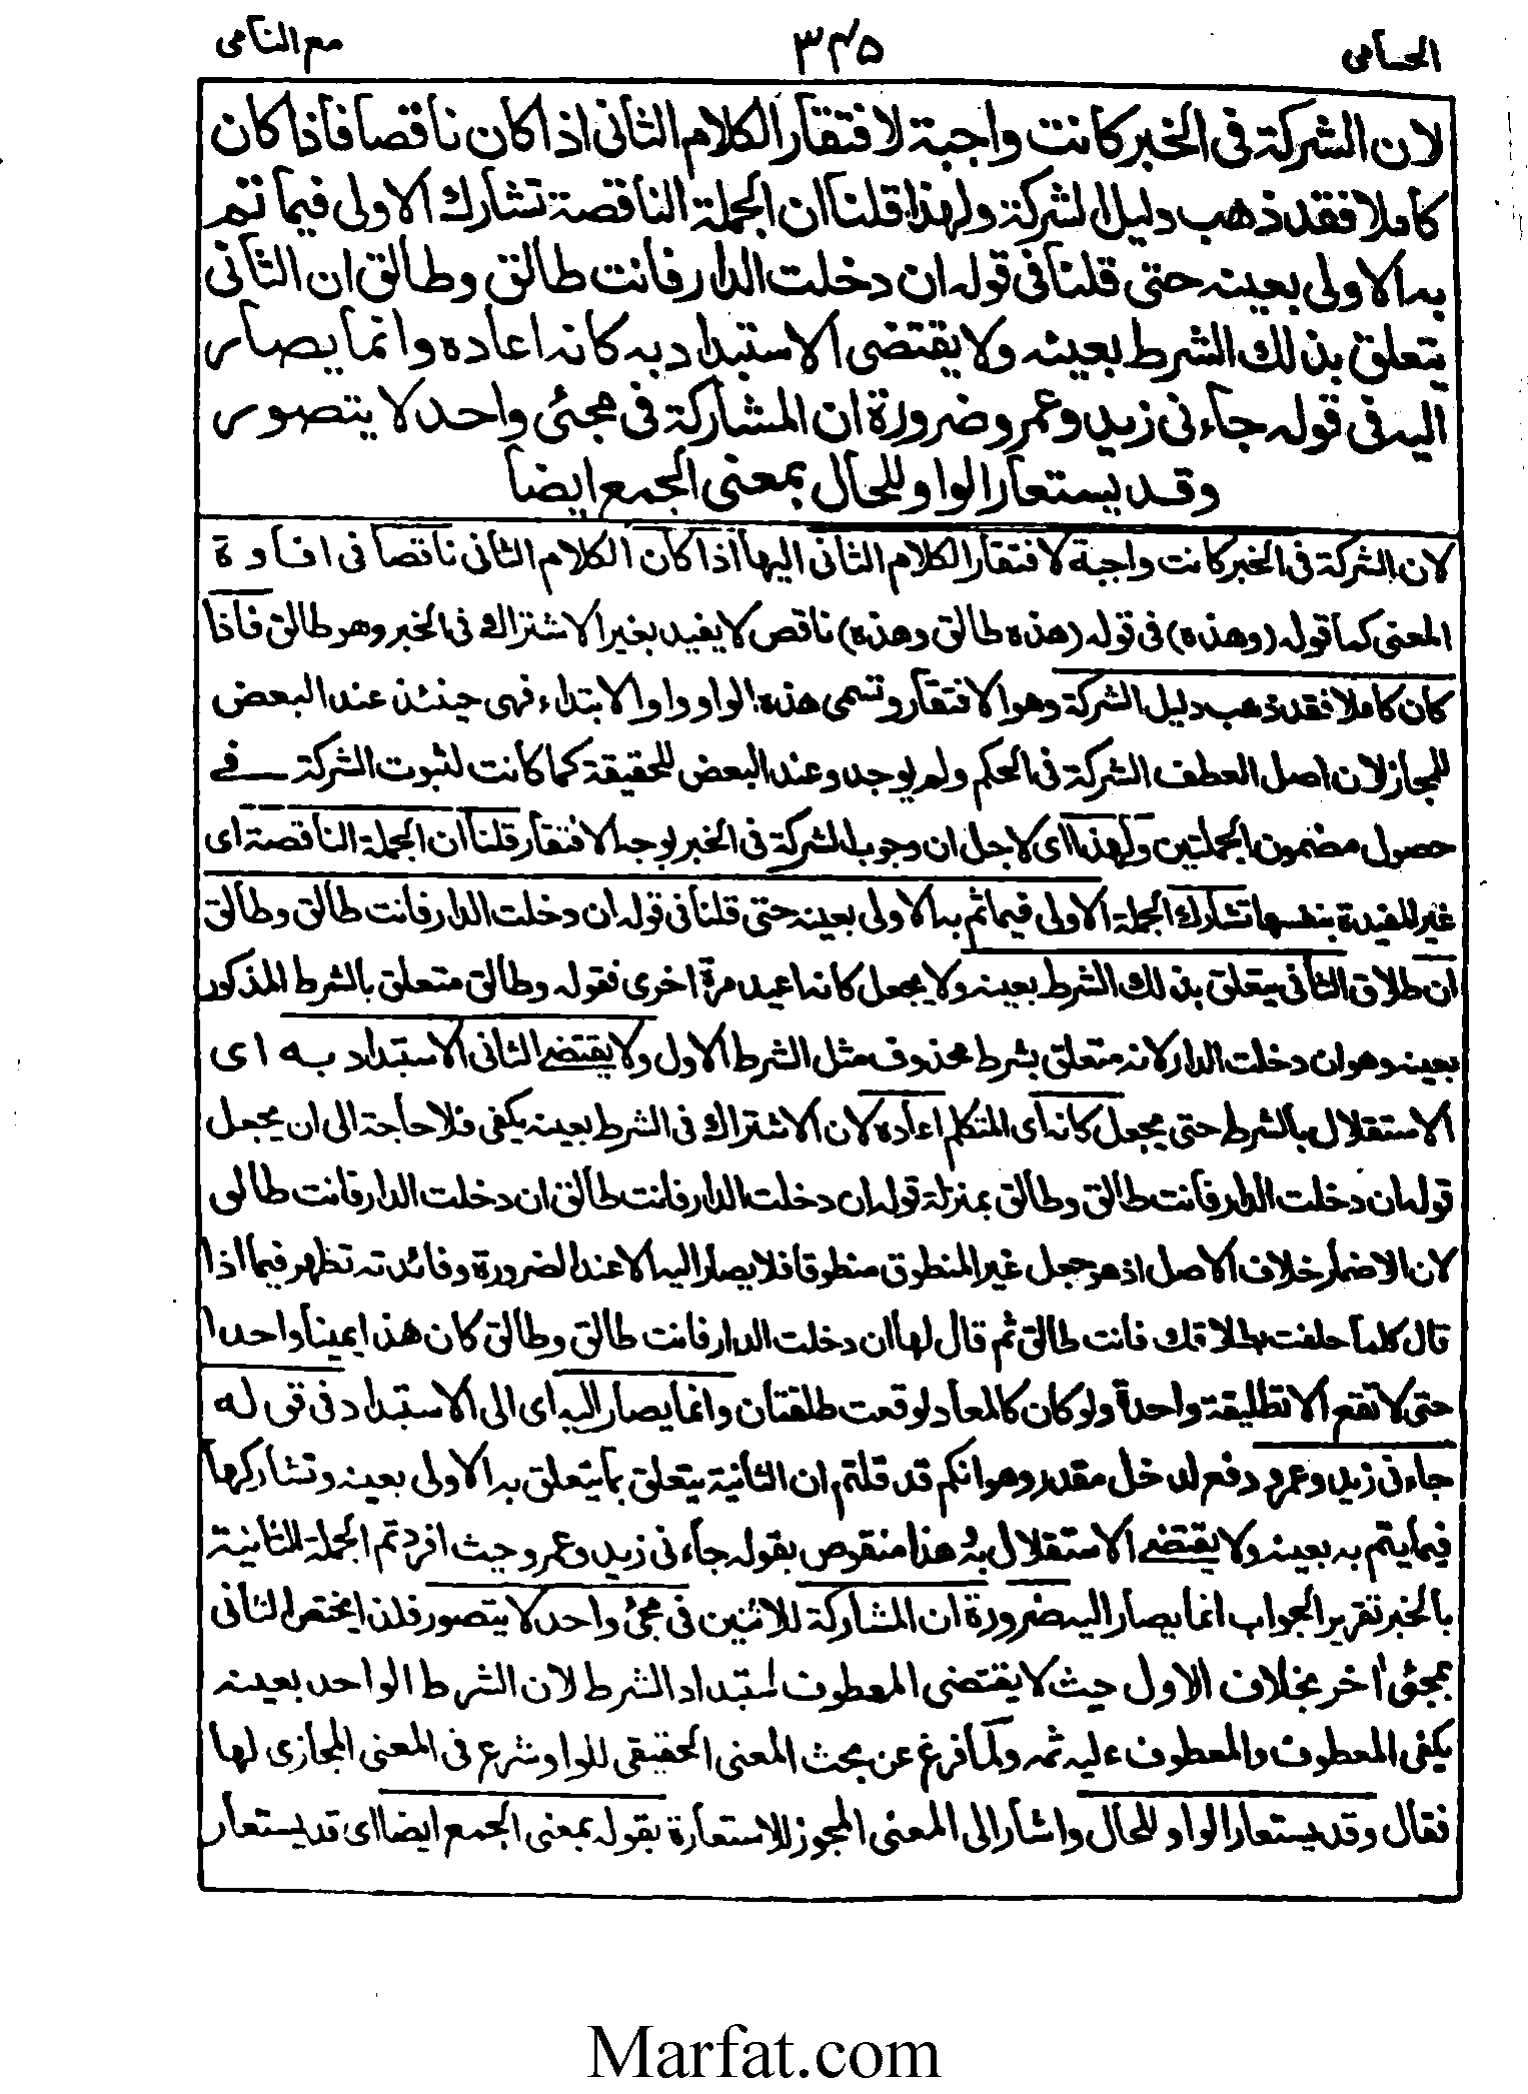 الحسامی ۳۴۵ مع النامی
لان الشركة فی الخبر كانت واجبة لافتقار الكلام الثانی اذا كان ناقصا فاذا كان
كاملا فقد ذهب دلیل الشركة ولهذا قلنا ان الجملة الناقصة تشارك الاولی فیما تتم
به الاولی بعینه حتی قلنا فی قوله ان دخلت الدار فانت طالق وطالق ان الثانی
یتعلق بذلك الشرط بعینه ولا یقتضی الاستبداد به كانه اعاده وانما یصار
الیه فی قوله جاءنی زید وعمرو ضرورة ان المشاركة فی مجئی واحد لا یتصور
وقد یستعار الواو للحال بمعنی الجمع ایضا
لان الشركة فی الخبر كانت واجبة لافتقار الكلام الثانی الیها اذا كان الكلام الثانی ناقصا فی افادة
المعنی كما قوله (وهذه) فی قوله (هذه طالق وهذه) ناقص لا یفید بغیر الاشتراك فی الخبر وهو طالق فاذا
كان كاملا فقد ذهب دلیل الشركة وهو الافتقار وتسمی هذه الواو واو الابتداء فهی حینئذ عند البعض
للمجاز لان اصل العطف الشركة فی الحكم ولم یوجد وعند البعض للحقیقة كما كانت لثبوت الشركة فے
حصول مضمون الجملتین ولهذا ای لاجل ان وجوب الشركة فی الخبر لوجه الافتقار قلنا ان الجملة الناقصة ای
غیر المفیدة بنفسها تشارك الجملة الاولی فیما تم به الاولی بعینه حتی قلنا فی قوله ان دخلت الدار فانت طالق وطالق
ان طلاق الثانی یتعلق بذلك الشرط بعینه ولا یجعل كانه اعید مرة اخری فقوله وطالق متعلق بالشرط المذكور
بعینه وهو ان دخلت الدار لا انه متعلق بشرط محذوف مثل الشرط الاول ولا یقتضے الثانی الاستبداد به ای
الاستقلال بالشرط حتی یجعل كانه ای المتكلم اعاده لان الاشتراك فی الشرط بعینه یكفی فلا حاجة الی ان یجعل
قوله ان دخلت الدار فانت طالق وطالق بمنزلة قوله ان دخلت الدار فانت طالق ان دخلت الدار فانت طالق
لان الاضمار خلاف الاصل اذ هو جعل غیر المنطوق منطوقا فلا یصار الیه الا عند الضرورة وفائدته تظهر فیما اذا
قال كلما حلفت بطلاقك فانت طالق ثم قال لها ان دخلت الدار فانت طالق وطالق كان هذا یمینا واحدا
حتی لا تقع الا تطلیقة واحدة ولو كان كالمعاد لوقعت طلقتان وانما یصار الیه ای الی الاستبداد فی قوله
جاءنی زید وعمرو دفع لدخل مقدر وهو انكم قد قلتم ان الثانیة یتعلق بما یتعلق به الاولی بعینه وتشاركها
فیما یتم به بعینه ولا یقتضے الاستقلال به هذا منقوص بقوله جاءنی زید وعمرو حیث افردتم الجملة الثانیة
بالخبر تقریر الجواب انما یصار الیه ضرورة ان المشاركة للاثنین فی مجئ واحد لا یتصور فلذا یختص الثانی
بمجئ اخر بخلاف الاول حیث لا یقتضی المعطوف استبداد الشرط لان الشرط الواحد بعینه
یكفی المعطوف والمعطوف علیه ثمه ولما فرغ عن بحث المعنی الحقیقی للواو شرع فی المعنی المجازی لها
فقال وقد یستعار الواو للحال واشار الی المعنی المجوز للاستعارة بقوله بمعنی الجمع ایضا ای قد یستعار
Marfat.com